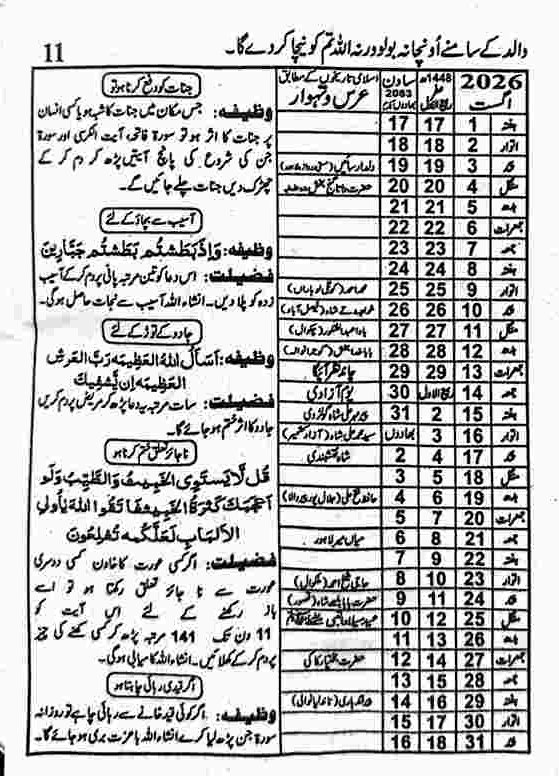 والد کے سامنے اُونچا نہ بولو ورنہ اللہ تم کو نیچا کر دے گا۔
11
2026 اگست
1448ھ صفر ربیع الاول
ساون 2083 بھادوں
اسلامی تاریخوں کے مطابق عرس و تہوار
ہفتہ 1 17 17
اتوار 2 18 18
3 19 19
منگل 4 20 20
بدھ 5 21 21
جمعرات 6 22 22
جمعہ 7 23 23
ہفتہ 8 24 24
اتوار 9 25 25
10 26 26
منگل 11 27 27
بدھ 12 28 28
جمعرات 13 29 29 چاند نظر آئیگا
جمعہ 14 ربیع الاول 30 یوم آزادی
ہفتہ 15 2 31 پیر مہر علی شاہ گولڑوی
اتوار 16 3 بھادوں (آزاد کشمیر)
17 4 2 شاہ نقشبندی
منگل 18 5 3
بدھ 19 6 4
جمعرات 20 7 5
جمعہ 21 8 6 میاں میر لاہور
ہفتہ 22 9 7
اتوار 23 10 8
24 11 9 حضرت بابا بلھے شاہ (قصور)
منگل 25 12 10 عید میلاد النبی
بدھ 26 13 11
جمعرات 27 14 12 حضرت بختیار کاکی
جمعہ 28 15 13
ہفتہ 29 16 14
اتوار 30 17 15
31 18 16
جنات کو دفع کرنا ہو تو
وظیفہ: جس مکان میں جنات کا شبہ ہو یا کسی انسان
پر جنات کا اثر ہو تو سورۃ فاتحہ، آیت الکرسی اور سورۃ
جن کی شروع کی پانچ آیتیں پڑھ کر دم کر کے
چھڑک دیں جنات چلے جائیں گے۔
آسیب سے بچاؤ کے لئے
وظیفہ: وَاِذَا بَطَشْتُمْ بَطَشْتُمْ جَبَّارِيْنَ
فضیلت: اس دعا کو تین مرتبہ پانی پر دم کر کے آسیب
زدہ کو پلا دیں۔ انشاء اللہ آسیب سے نجات حاصل ہوگی۔
جادو کے توڑ کے لئے
وظیفہ: أَسْأَلُ اللهَ الْعَظِيْمَ رَبَّ الْعَرْشِ
الْعَظِيْمِ اَنْ يَّشْفِيَكَ
فضیلت: سات مرتبہ یہ دعا پڑھ کر مریض پر دم کریں
جادو کا اثر ختم ہو جائے گا۔
ناجائز تعلق ختم کرنا ہو
قُل لَّا يَسْتَوِى الْخَبِيْثُ وَالطَّيِّبُ وَلَوْ
اَعْجَبَكَ كَثْرَةُ الْخَبِيْثِ فَاتَّقُوا اللهَ يٰأُولِى
الْاَلْبَابِ لَعَلَّكُمْ تُفْلِحُوْنَ
فضیلت: اگر کسی عورت کا خاوند کسی دوسری
عورت سے ناجائز تعلق رکھتا ہو تو اسے
باز رکھنے کے لئے اس آیت کو
11 دن تک 141 مرتبہ پڑھ کر کسی کھانے کی چیز
پر دم کر کے کھلائیں۔ انشاء اللہ کامیابی ہوگی۔
اگر قیدی رہائی چاہتا ہو
وظیفہ: اگر کوئی قید خانے سے رہائی چاہے تو روزانہ
سورۃ جن پڑھ لیا کرے انشاء اللہ باعزت بری ہو جائے گا۔